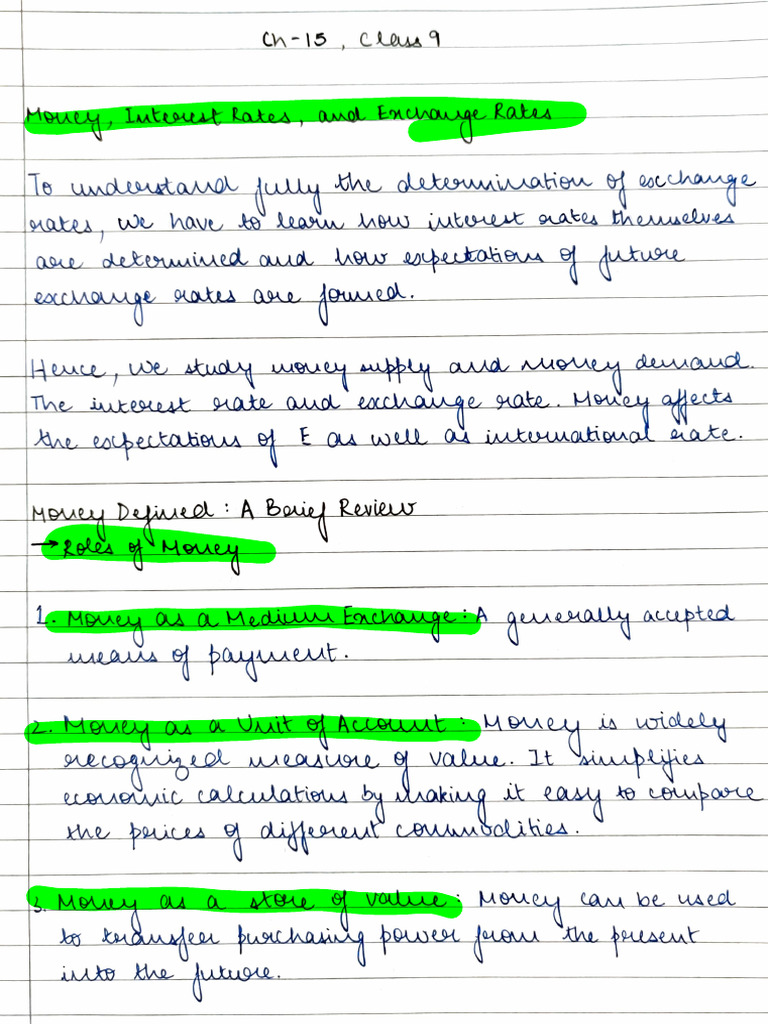 Ch-15, Class 9
Money, Interest Rates, and Exchange Rates
To understand fully the determination of exchange
rates, we have to learn how interest rates themselves
are determined and how expectations of future
exchange rates are formed.
Hence, we study money supply and money demand.
The interest rate and exchange rate. Money affects
the expectations of E as well as international rate.
Money Defined : A Brief Review
→ Roles of Money
1. Money as a Medium Exchange : A generally accepted
means of payment.
2. Money as a Unit of Account : Money is widely
recognized measure of value. It simplifies
economic calculations by making it easy to compare
the prices of different commodities.
3. Money as a store of value : Money can be used
to transfer purchasing power from the present
into the future.